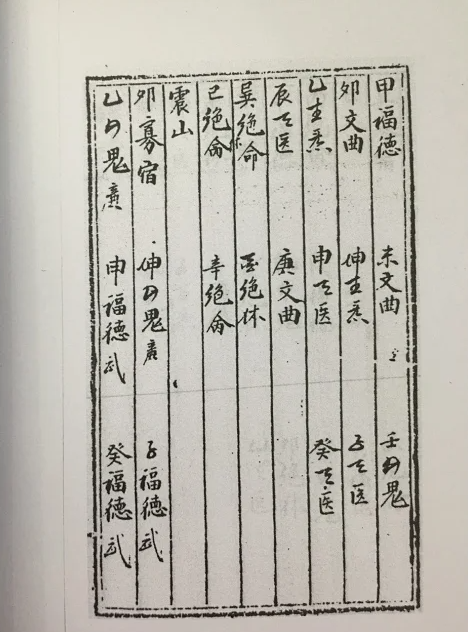 甲福德 未文曲 壬五鬼
卯文曲 坤生炁 子天医
乙生炁 申天医 癸天医
辰天医 庚文曲
巽絶命 絶体
巳絶命 辛絶命
震山
卯寡宿 坤五鬼廉 子福德武
乙五鬼廉 申福德武 癸福德武